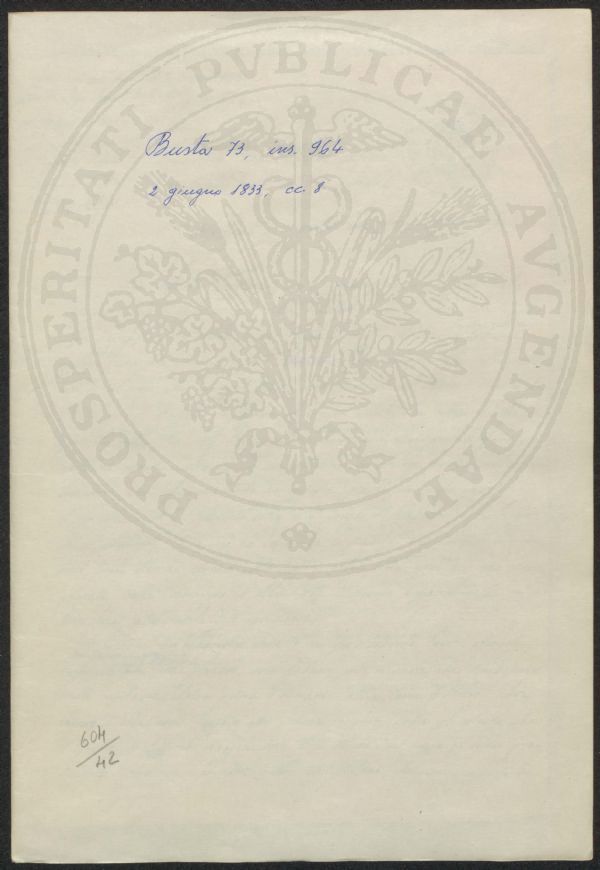 PROSPERITATI PVBLICAE AVGENDAE
Busta 73, ins. 964
2 giugno 1833, cc. 8
604/42